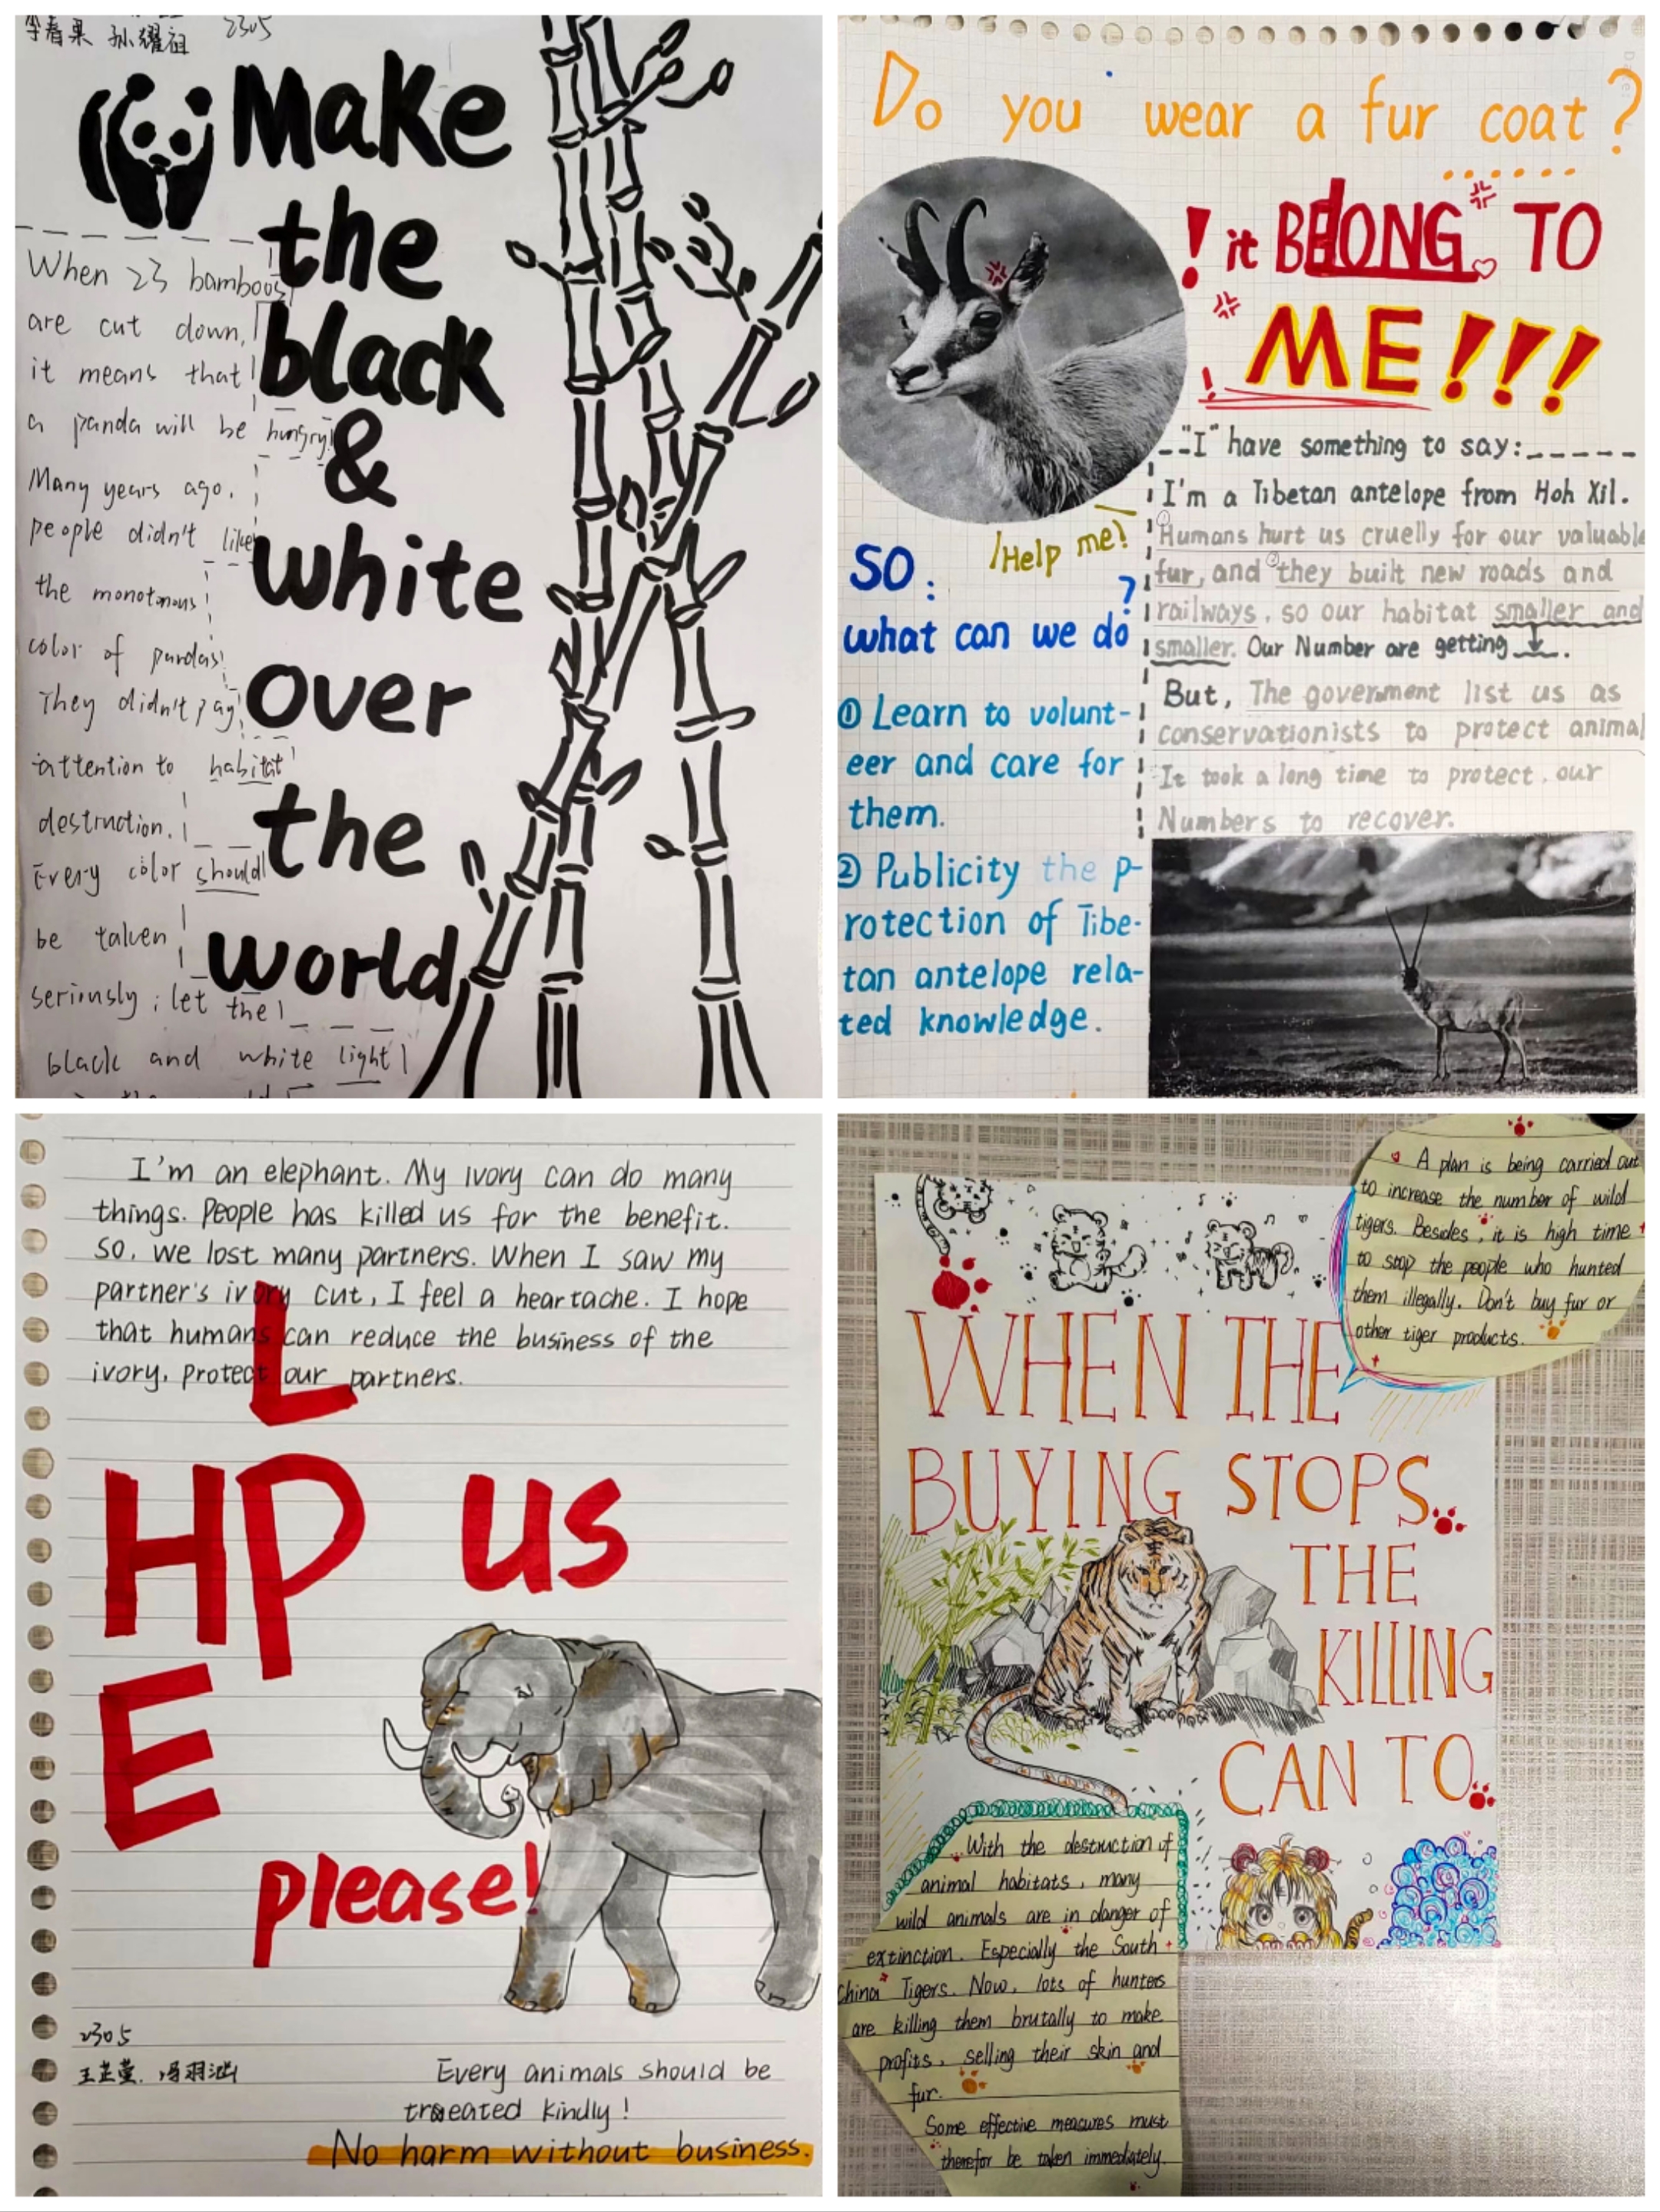 李春果 孙耀祖 2305
Make
the
black
&
white
over
the
world
When 23 bamboos
are cut down,
it means that
a panda will be hungry!
Many years ago,
people didn't like
the monotonous
color of pandas
They didn't pay
attention to habitat
destruction.
Every color should
be taken
seriously; let the
black and white light
Do you wear a fur coat?
! it BELONG TO
ME!!!
"I" have something to say:
I'm a Tibetan antelope from Hoh Xil.
①Humans hurt us cruelly for our valuable
fur, and ②they built new roads and
railways, so our habitat smaller and
smaller. Our Number are getting ↓.
But, The government list us as
conservationists to protect animal
It took a long time to protect our
Numbers to recover.
Help me!
SO:
what can we do?
① Learn to volunt-
eer and care for
them.
② Publicity the p-
rotection of Tibe-
tan antelope rela-
ted knowledge.
I'm an elephant. My ivory can do many
things. People has killed us for the benefit.
So, we lost many partners. When I saw my
partner's ivory cut, I feel a heartache. I hope
that humans can reduce the business of the
ivory, protect our partners.
HELP us
please!
2305
Every animals should be
traeated kindly!
No harm without business.
A plan is being carried out
to increase the number of wild
tigers. Besides, it is high time
to stop the people who hunted
them illegally. Don't buy fur or
other tiger products.
WHEN THE
BUYING STOPS
THE
KILLING
CAN TO
With the destruction of
animal habitats, many
wild animals are in danger of
extinction. Especially the South
China Tigers. Now, lots of hunters
are killing them brutally to make
profits, selling their skin and
fur.
Some effective measures must
therefor be taken immediately.